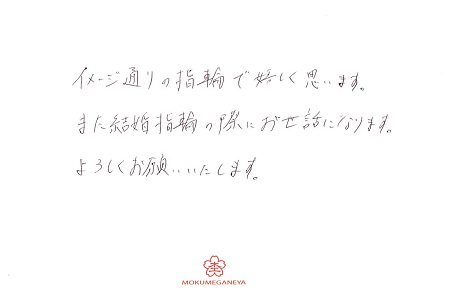 イメージ通りの指輪で嬉しく思います。
また結婚指輪の際にお世話になります。
よろしくお願いいたします。
MOKUMEGANEYA